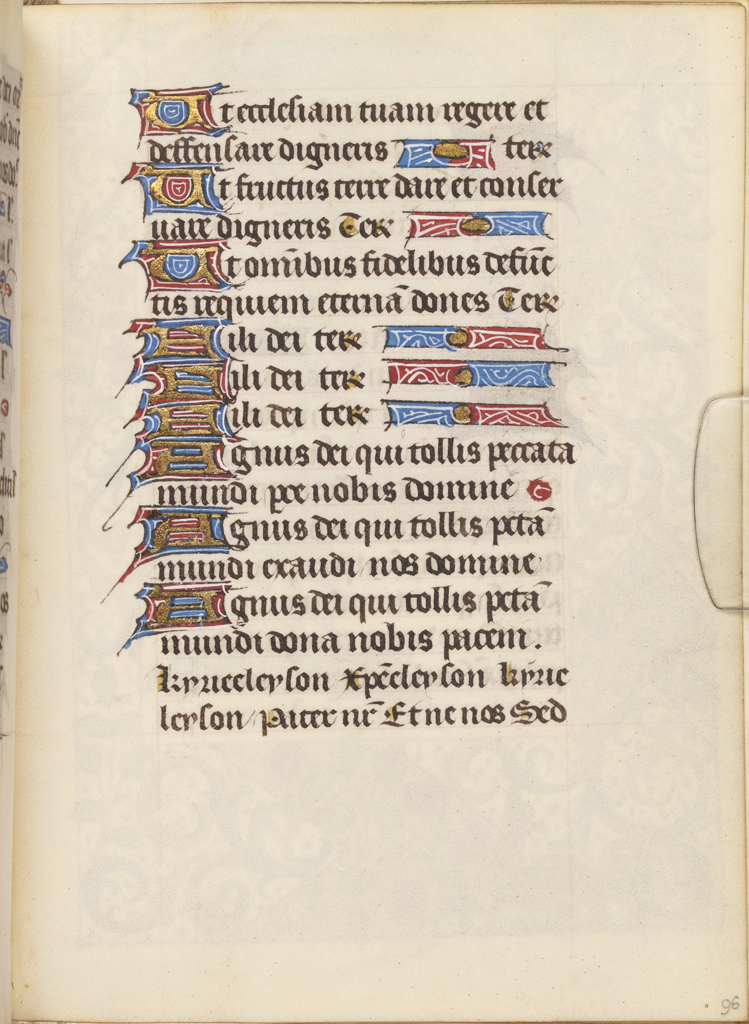 Ut ecclesiam tuam regere et
deffensare digneris ter
Ut fructus terre dare et conser
uare digneris Ter
Ut om̄ibus fidelibus defūc
tis requiem eternā dones Ter
Fili dei ter
Fili dei ter
Fili dei ter
Agnus dei qui tollis peccata
mundi pce nobis domine
Agnus dei qui tollis pctā
mundi exaudi nos domine
Agnus dei qui tollis pctā
mundi dona nobis pacem.
kyrieeleyson Xp̄eeleyson kyrie
leyson / Pater nr̄ Et ne nos Sed
96